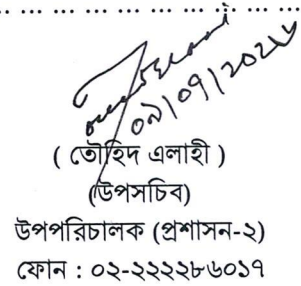 ... ... ... ... ... ... ... ... ...
০৯/০৭/২০২৬
( তৌহিদ এলাহী )
(উপসচিব)
উপপরিচালক (প্রশাসন-২)
ফোন : ০২-২২২২৮৬০১৭